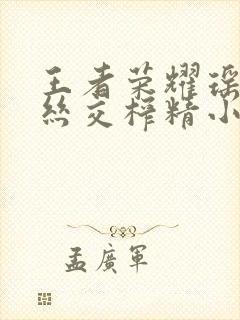 王者荣耀瑶
丝交榨精小
孟廣軍